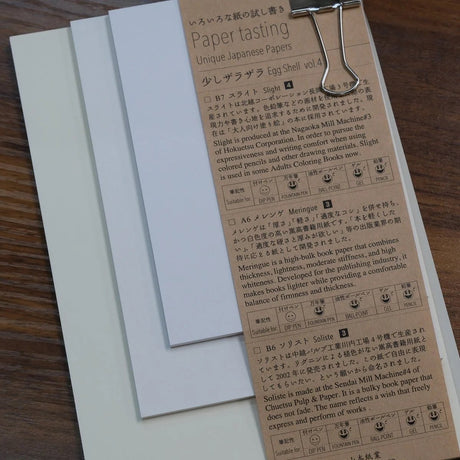 いろいろな紙の試し書き
Paper tasting
Unique Japanese Papers
少しザラザラ Egg Shell vol.4
□ B7 スライト Slight 4
スライトは北越コーポレーション長岡工場3号機で生
産されています。色鉛筆などの画材を使用
現力や書き心地を追求するために開発されました。現
在は「大人向け塗り絵」の本に採用されています。
Slight is produced at the Nagaoka Mill Machine#3
of Hokuetsu Corporation. In order to pursue the
expressiveness and writing comfort when using
colored pencils and other drawing materials. Slight
is used in some Adults Coloring Books now.
筆記性 付けペン 万年筆 油性ボールペン ゲル 鉛筆
Suitable for DIP PEN FOUNTAIN PEN BALL POINT GEL PENCIL
□ A6 メレンゲ Meringue 3
メレンゲは「厚さ」「軽さ」「適度なコシ」を併せ持ち、
かつ白色度の高い嵩高書籍用紙です。「本を軽くした
い」「適度な硬さと厚みが欲しい」等の出版業界の期
待に応える紙として開発されました。
Meringue is a high-bulk book paper that combines
thickness, lightness, moderate stiffness, and high
whiteness. Developed for the publishing industry, it
makes books lighter while providing a comfortable
balance of firmness and thickness.
筆記性 付けペン 万年筆 油性ボールペン ゲル 鉛筆
Suitable for DIP PEN FOUNTAIN PEN BALL POINT GEL PENCIL
□ B6 ソリスト Soliste 3
ソリストは中越パルプ工業川内工場4号機で生産され
ています。リグニンによる褪色がない嵩高書籍用紙と
して2002年に発売されました。この紙で自由に表現
してもらいたい、という願いから命名されました。
Soliste is made at the Sendai Mill Machine#4 of
Chuetsu Pulp & Paper. It is a bulky book paper that
does not fade. The name reflects a wish that freely
express and perform of works
筆記性 付けペン 万年筆 油性ボールペン ゲル 鉛筆
Suitable for DIP PEN FOUNTAIN PEN BALL POINT GEL PENCIL
山本紙業